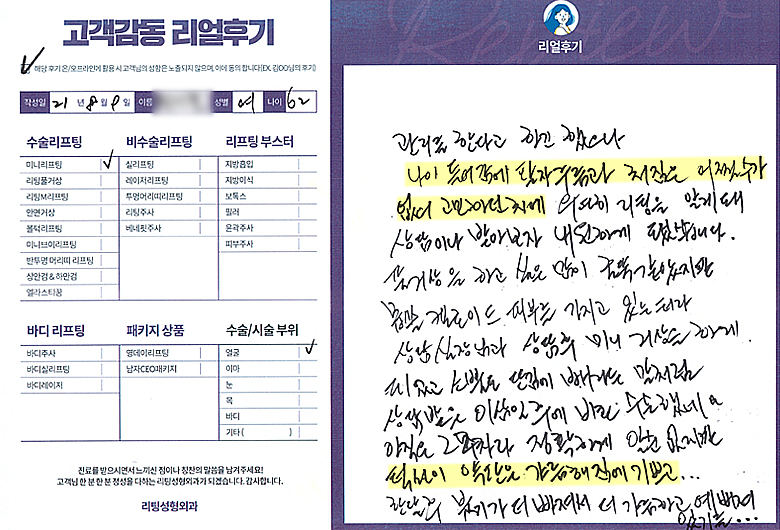 고객감동 리얼후기
해당 후기 온/오프라인에 활용 시 고객님의 성함은 노출되지 않으며, 이에 동의 합니다(EX. 김OO님의 후기)
작성일 21 년 8 월 9 일 이름 성별 여 나이 62
수술리프팅
미니리프팅
리팅풀거상
리팅브리프팅
안면거상
볼턱리프팅
미니브이리프팅
반투명 머리띠 리프팅
상안검 & 하안검
엘라스티꿈
비수술리프팅
실리프팅
레이저리프팅
투명머리띠리프팅
리팅주사
베네핏주사
리프팅 부스터
지방흡입
지방이식
보톡스
필러
윤곽주사
피부주사
바디 리프팅
바디주사
바디실리프팅
바디레이저
패키지 상품
영데이리프팅
남자CEO패키지
수술/시술 부위
얼굴
이마
눈
목
바디
기타 ( )
진료를 받으시면서 느끼신 점이나 칭찬의 말씀을 남겨주세요!
고객님 한 분 한 분 정성을 다하는 리팅성형외과가 되겠습니다. 감사합니다.
리팅성형외과
Review
리얼후기
관리를 한다고 하긴 했으나
나이 들어감에 팔자주름과 처짐은 어쩔수가
없어 고민하던차에 우연히 리팅을 알게돼
상담이나 받아보자 내원하게 되었습니다.
풀거상을 하고 싶은 맘이 굴뚝같았지만
몸쪽 켈로이드 피부를 가지고 있는터라
상담실장님과 상담후 미니거상을 하게
되었고 쇠뿔도 단김에 빼라는 말처럼
상담받은 이삼일 후에 바로 수술했네요
아직은 2주차라 정확하게 알순 없지만
턱선이 약간은 갸름해짐에 기쁘고...
한달뒤 붓기가 더 빠져서 더 갸름하고 예뻐져
있기를...